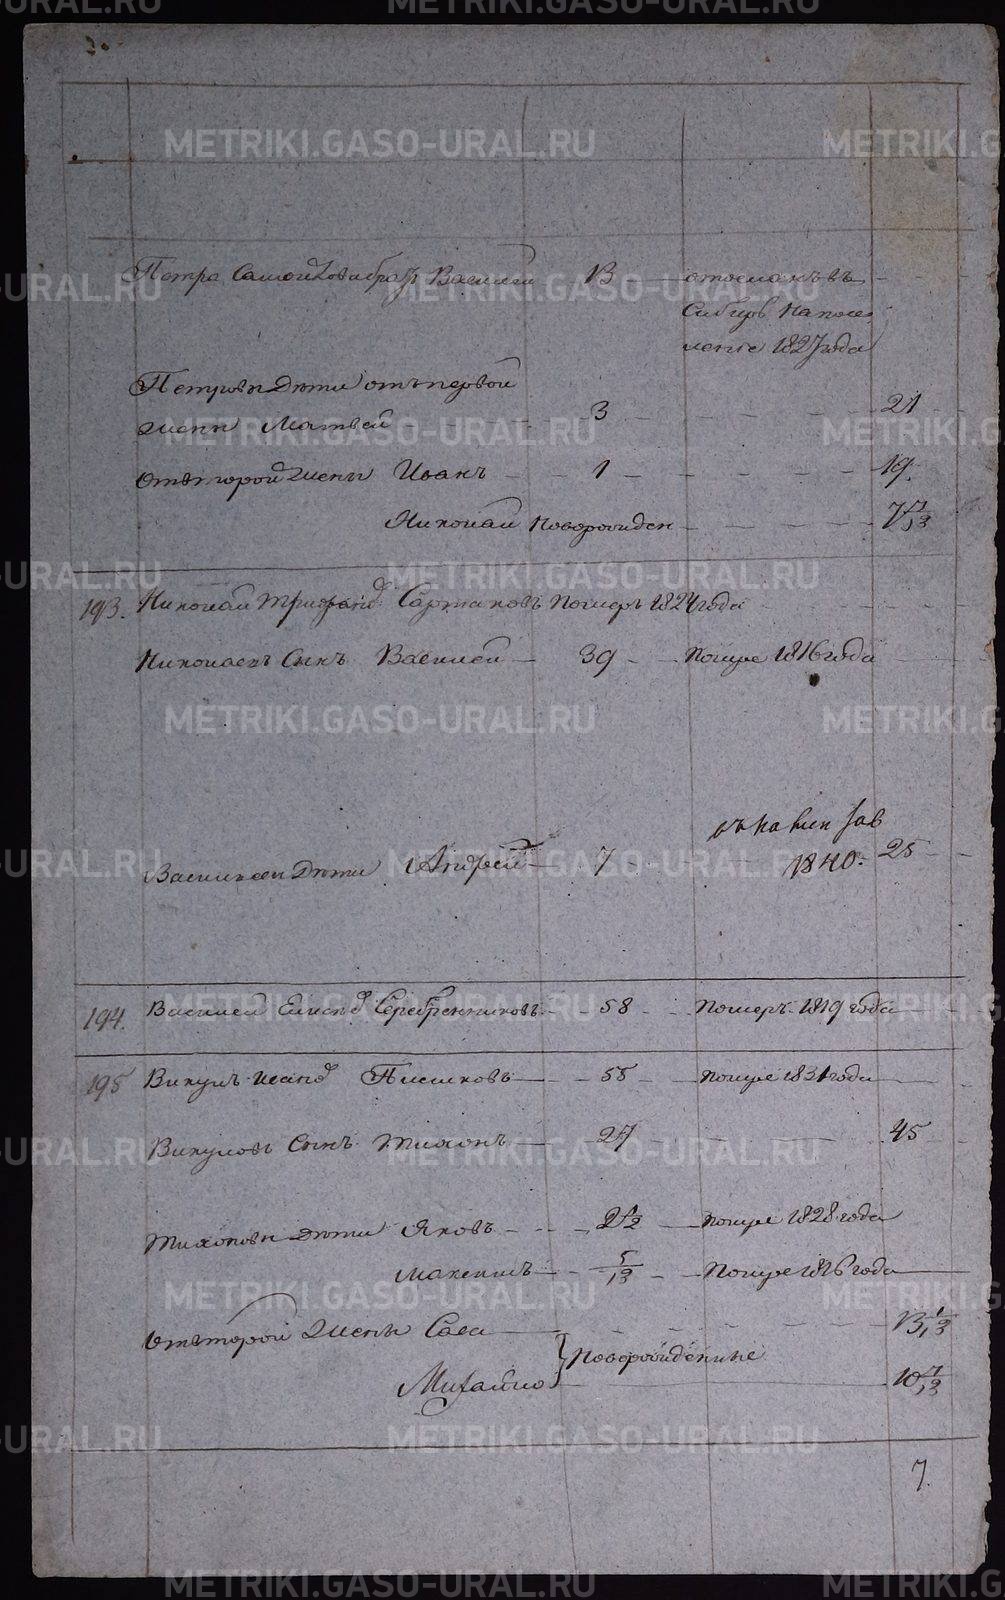 METRIKI.GASO-URAL.RU
Петра Самойлова братъ Василей 13 отосланъ въ
Сибирь на посе
ление 1827 года
Петровы дети отъ первой
жены Матвей 3 21
отвторой жены Иванъ 1 19.
Николай новорожден 7 7/12
193. Николай Сартаковъ померъ 1824 года
Николаевъ сынъ Василей 39 помре 1816 года
зав
1840.
Васильевы дети Андрей 7 25
194. Василей Серебренниковъ 58 померъ 1819 года
195 Викулъ Пислковъ 55 помре 1831 года
Викуловъ сынъ Тихонъ 27 45
Тихоновы дети Яковъ 2 1/2 помре 1828 года
Максимъ 5/12 помре 1816 года
отвторой жены Сава 13 1/12
новорожденные
Михайло 10 7/12
7.